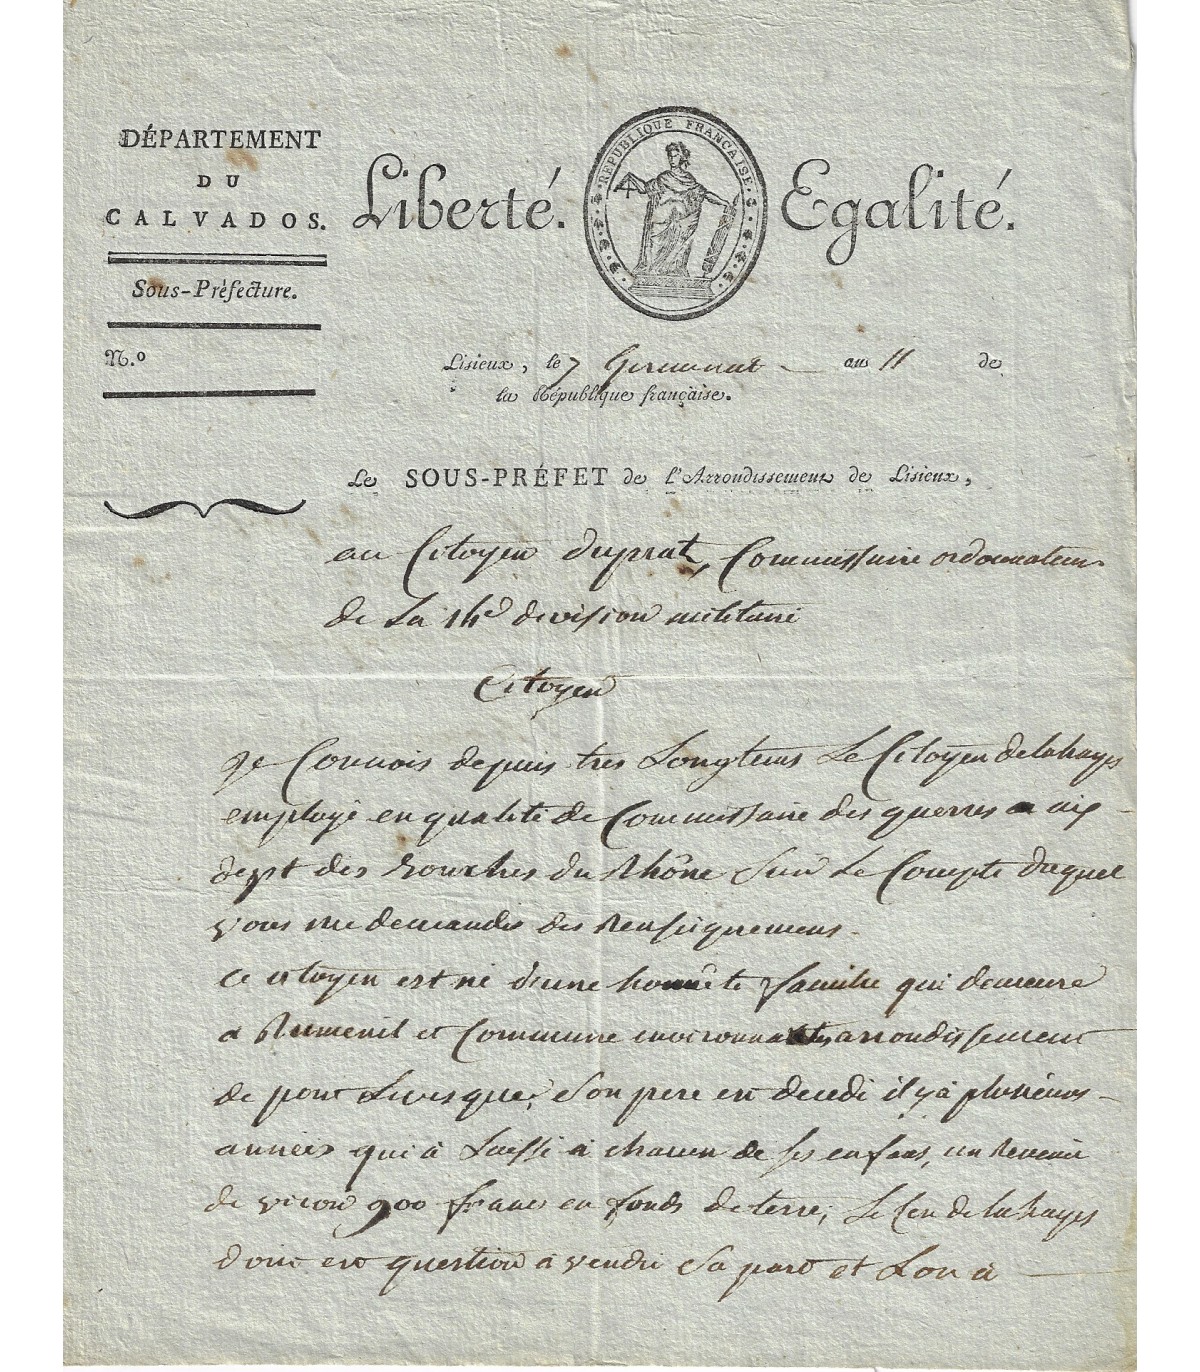 DÉPARTEMENT
DU
CALVADOS.
Sous-Préfecture.
N.º
Liberté.
RÉPUBLIQUE FRANÇAISE
Egalité.
Lisieux, le 7 Germinal an 11 de
la République française.
Le SOUS-PRÉFET de l'Arrondissement de Lisieux,
au Citoyen duprat, Commissaire ordonnateur
de La 14e division militaire
Citoyen
Je Connois depuis tres Longtems Le Citoyen delahays
employé en qualité de Commissaire des guerres
dept des bouches du Rhône Sur Le Compte duquel
vous me demandés des Renseignemens.
Ce citoyen est né d'une honnête famille qui demeure
a Rumenil et Commune environnantes arrondissement
de pont Levesque, Son pere est decedé il y à plusieurs
années qui à Laissé a chacun de ses enfans, un Revenu
de viron 900 francs en fonds de terre; Le Cen delahays
dont est question à vendu Sa part et L'on à